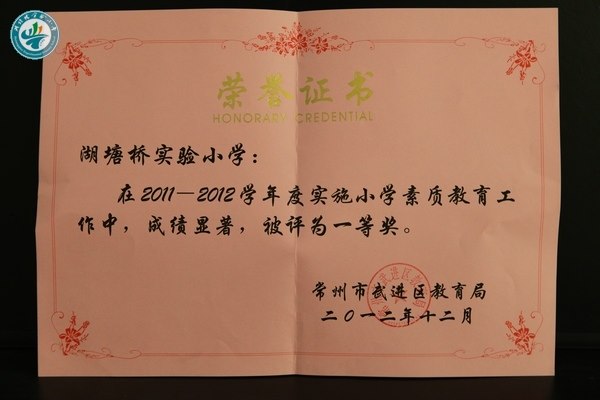 荣誉证书
HONORARY CREDENTIAL
湖塘桥实验小学：
在2011—2012学年度实施小学素质教育工
作中，成绩显著，被评为一等奖。
常州市武进区教育局
二〇一二年十二月